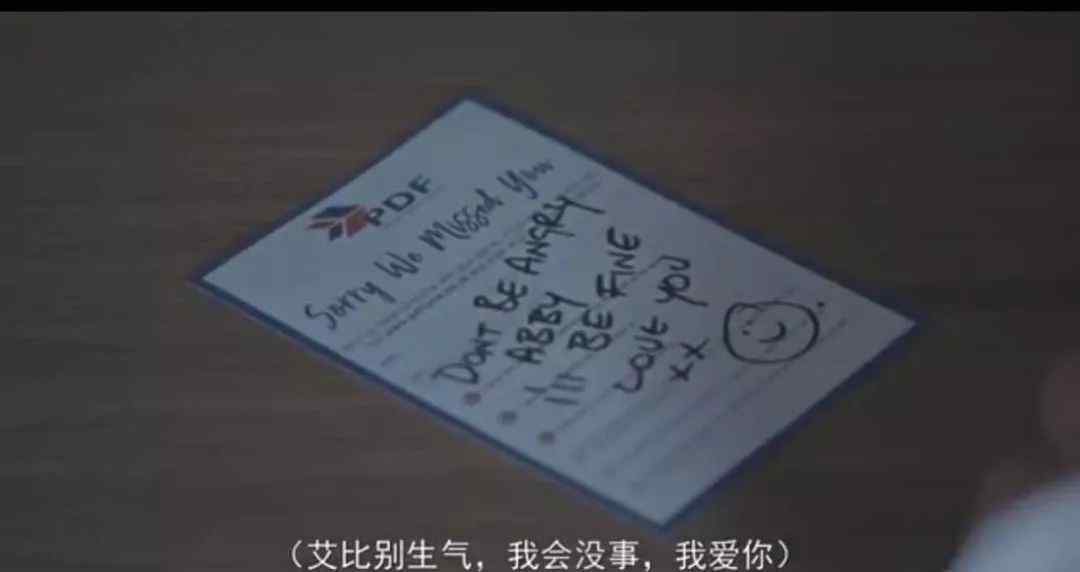 PDF
Sorry We Missed You
DONT BE ANGRY
ABBY
I'll BE FINE
LOVE YOU
xx
（艾比别生气，我会没事，我爱你）